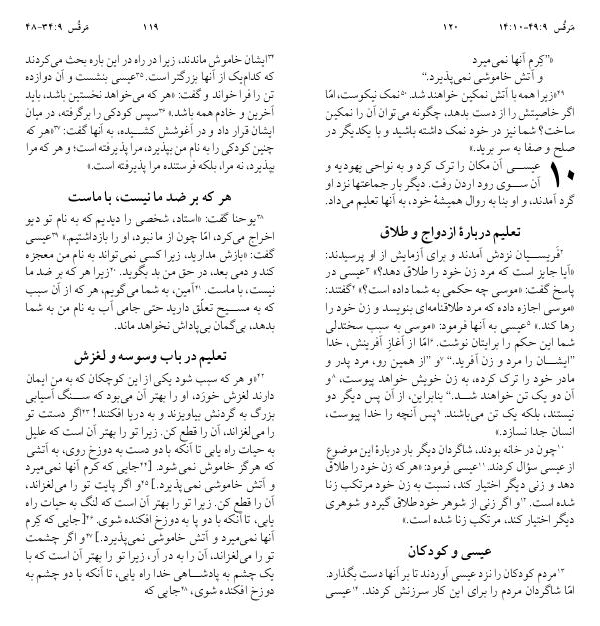 مَرقُس ۳۴:۹-۴۸
۱۱۹
۳۴ایشان خاموش ماندند، زیرا در راه در این باره بحث می‌کردند
که کدام‌یک از آنها بزرگتر است. ۳۵عیسی بنشست و آن دوازده
تن را فرا خواند و گفت: «هر که می‌خواهد نخستین باشد، باید
آخرین و خادم همه باشد.» ۳۶سپس کودکی را برگرفته، در میان
ایشان قرار داد و در آغوشش کشیده، به آنها گفت: ۳۷«هر که
چنین کودکی را به نام من بپذیرد، مرا پذیرفته است؛ و هر که مرا
بپذیرد، نه مرا، بلکه فرستندهٔ مرا پذیرفته است.»
هر که بر ضد ما نیست، با ماست
۳۸یوحنا گفت: «استاد، شخصی را دیدیم که به نام تو دیو
اخراج می‌کرد، امّا چون از ما نبود، او را بازداشتیم.» ۳۹عیسی
گفت: «بازش مدارید، زیرا کسی نمی‌تواند به نام من معجزه
کند و دمی بعد، در حق من بد بگوید. ۴۰زیرا هر که بر ضد ما
نیست، با ماست. ۴۱آمین، به شما می‌گویم، هر که از آن سبب
که به مسیح تعلّق دارید حتی جامی آب به نام من به شما
بدهد، بی‌گمان بی‌پاداش نخواهد ماند.
تعلیم در باب وسوسه و لغزش
۴۲«و هر که سبب شود یکی از این کوچکان که به من ایمان
دارند لغزش خورَد، او را بهتر آن می‌بود که سنگ آسیابی
بزرگ به گردنش بیاویزند و به دریا افکنند! ۴۳اگر دستت تو
را می‌لغزاند، آن را قطع کن. زیرا تو را بهتر آن است که علیل
به حیات راه یابی تا آنکه با دو دست به دوزخ روی، به آتشی
که هرگز خاموش نمی‌شود. [۴۴جایی که کرم آنها نمی‌میرد
و آتش خاموشی نمی‌پذیرد.] ۴۵و اگر پایت تو را می‌لغزاند،
آن را قطع کن. زیرا تو را بهتر آن است که لنگ به حیات راه
یابی، تا آنکه با دو پا به دوزخ افکنده شوی. ۴۶[جایی که کِرم
آنها نمی‌میرد و آتش خاموشی نمی‌پذیرد.] ۴۷و اگر چشمت
تو را می‌لغزاند، آن را به در آر، زیرا تو را بهتر آن است که با
یک چشم به پادشاهی خدا راه یابی، تا آنکه با دو چشم به
دوزخ افکنده شوی، ۴۸جایی که
مَرقُس ۴۹:۹-۱۴:۱۰
۱۲۰
«”کِرم آنها نمی‌میرد
و آتش خاموشی نمی‌پذیرد.“
۴۹«زیرا همه با آتش نمکین خواهند شد. ۵۰نمک نیکوست، امّا
اگر خاصیتش را از دست بدهد، چگونه می‌توان آن را نمکین
ساخت؟ شما نیز در خود نمک داشته باشید و با یکدیگر در
صلح و صفا به سر برید.»
۱۰ عیسی آن مکان را ترک کرد و به نواحی یهودیه و
آن سوی رود اردن رفت. دیگر بار جماعتها نزد او
گرد آمدند، و او بنا به روال همیشهٔ خود، به آنها تعلیم می‌داد.
تعلیم دربارهٔ ازدواج و طلاق
۲فَریسیان نزدش آمدند و برای آزمایش از او پرسیدند:
«آیا جایز است که مرد زن خود را طلاق دهد؟» ۳عیسی در
پاسخ گفت: «موسی چه حکمی به شما داده است؟» ۴گفتند:
«موسی اجازه داده که مرد طلاقنامه‌ای بنویسد و زن خود را
رها کند.» ۵عیسی به آنها فرمود: «موسی به سبب سختدلی
شما این حکم را برایتان نوشت. ۶امّا از آغاز آفرینش، خدا
”ایشان را مرد و زن آفرید.“ ۷و ”از همین رو، مرد پدر و
مادر خود را ترک کرده، به زن خویش خواهد پیوست، ۸و
آن دو یک تن خواهند شد.“ بنابراین، از آن پس دیگر دو
نیستند، بلکه یک تن می‌باشند. ۹پس آنچه را خدا پیوست،
انسان جدا نسازد.»
۱۰چون در خانه بودند، شاگردان دیگر بار دربارهٔ این موضوع
از عیسی سؤال کردند. ۱۱عیسی فرمود: «هر که زن خود را طلاق
دهد و زنی دیگر اختیار کند، نسبت به زن خود مرتکب زنا
شده است. ۱۲و اگر زنی از شوهر خود طلاق گیرد و شوهری
دیگر اختیار کند، مرتکب زنا شده است.»
عیسی و کودکان
۱۳مردم کودکان را نزد عیسی آوردند تا بر آنها دست بگذارد.
امّا شاگردان مردم را برای این کار سرزنش کردند. ۱۴عیسی